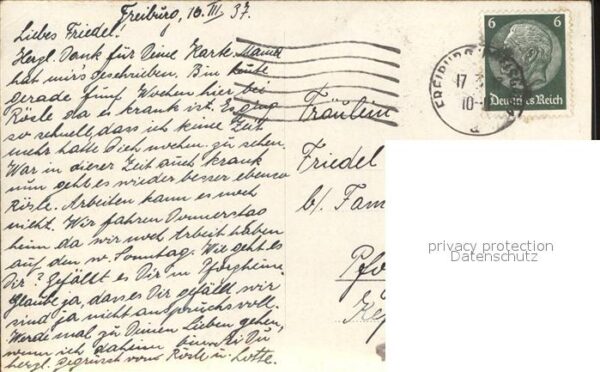 Freiburg, 16. III. 37.
Liebes Friedel!
Herzl. Dank für Deine Karte. Mama
hat mirs geschrieben. Bin heute
gerade fünf Wochen hier bei
Rösle da es krank ist. Es ging
so schnell, dass ich keine Zeit
mehr hatte Dich nochm. zu sehen.
War in dieser Zeit auch krank
nun geht es wieder besser ebenso
Rösle. Arbeiten kann es noch
nicht. Wir fahren Donnerstag
heim da wir noch Arbeit haben
auf den w. Sonntag. Wie geht es
Dir? Gefällt es Dir in Pforzheim.
Glaube ja, dass es Dir gefällt wir
sind ja nicht anspruchsvoll.
Werde mal zu Deinen Lieben gehen,
wenn ich daheim bin. Sei Du
herzl. gegrüsst von Rösle u. Lotte.
Fräulein
Friedel
b/ Fam
Pfo
6 6
Deutsches Reich
FREIBURG
17
10-
a
privacy protection
Datenschutz